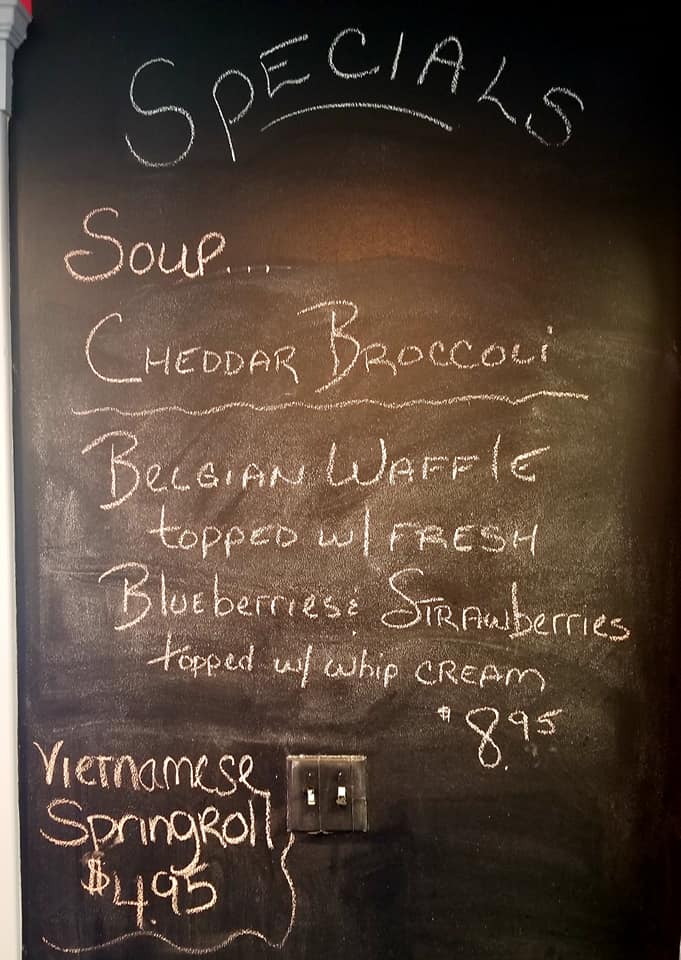 SPECIALS
Soup...
CHEDDAR BROCCOLi
BELGIAN WAFFLE
topped w/ FRESH
Blueberries & STRAWberries
topped w/ whip CREAM
$8.95
Vietnamese
SpringRoll
$4.95